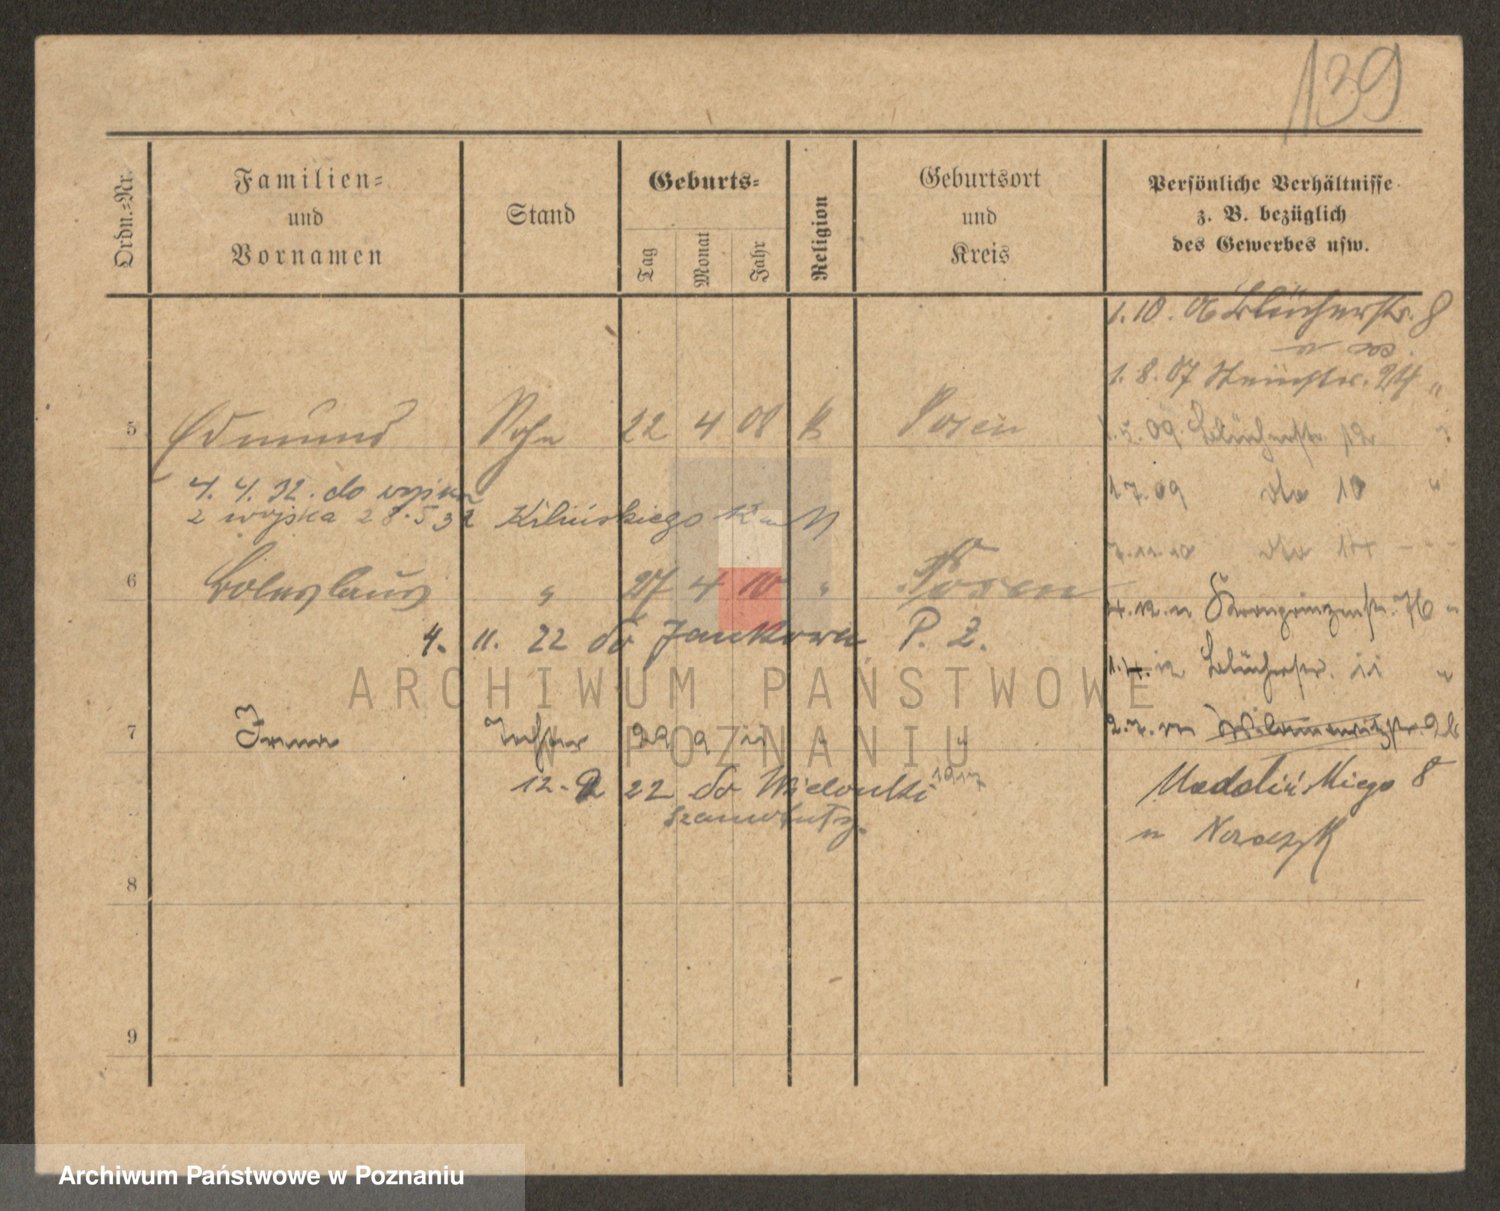 139
Ordn.-Nr.
Familien-
und
Vornamen
Stand
Geburts-
Tag
Monat
Jahr
Religion
Geburtsort
und
Kreis
Persönliche Verhältnisse
z. B. bezüglich
des Gewerbes usw.
1. 10. 06 Blücherstr. 8
1. 8. 07
5 Edmund Sohn 22 4 08 k Posen
09 Blücherstr. 12
4. 4. 32. do wojska
1 7. 09 do 10 "
z wojska 28.5 32 Kilińskiego
do
6 Boleslaus " 27 4 10 " Posen
Kronprinzenstr. 76 "
4. 11. 22 do Jankowa P. Z.
Blücherstr. 11 "
7 Irene Tochter 29 9 11 " "
12. 22 do Wielonki 1917
Szamotuły.
Madalińskiego 8
u Nowaczyk
8
9
ARCHIWUM PAŃSTWOWE
W POZNANIU
Archiwum Państwowe w Poznaniu